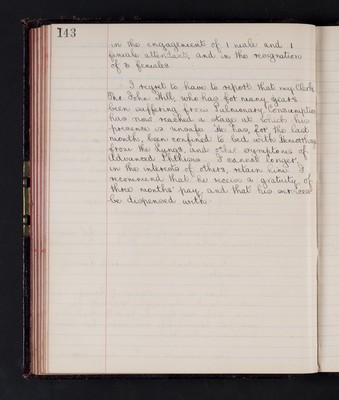 143
in the engagement of 1 male and 1
female attendants, and in the resignation
of 3 females.
I regret to have to report that my Clerk
Mr. John Hill, who has for many years
been suffering from Pulmonary Consumption
has now reached a stage at which his
presence is unsafe. He has, for the last
month, been confined to bed with Hemorrhage
from the Lungs, and other symptoms of
Advanced Phthisis. I cannot longer,
in the interests of others, retain him. I
recommend that he receive a gratuity of
three months' pay, and that his services
be dispensed with.